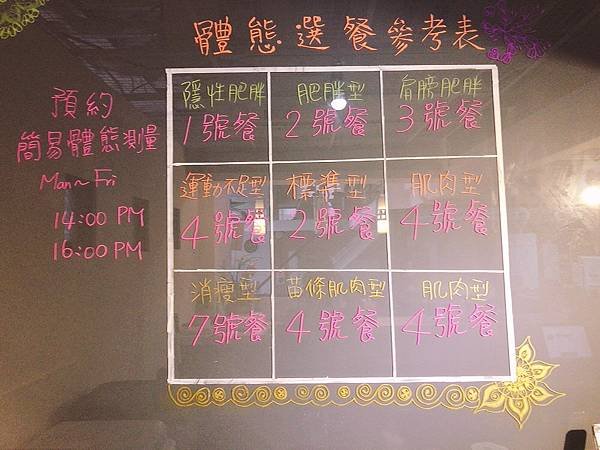 體態選餐參考表
預約
簡易體態測量
Man~Fri
14:00 PM
16:00 PM
隱性肥胖 肥胖型 肩膀肥胖
1號餐 2號餐 3號餐
運動不足型 標準型 肌肉型
4號餐 2號餐 4號餐
消瘦型 苗條肌肉型 肌肉型
7號餐 4號餐 4號餐